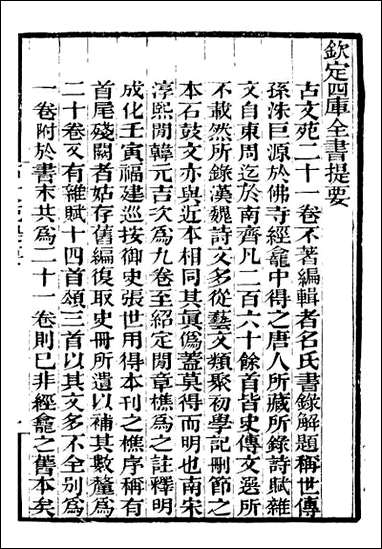 欽定四庫全書提要
古文苑二十一卷不著編輯者名氏書錄解題稱世傳
孫洙巨源於佛寺經龕中得之唐人所藏所錄詩賦雜
文自東周迄於南齊凡二百六十餘首皆史傳文選所
不載然所錄漢魏詩文多從藝文類聚初學記刪節之
本石鼓文亦與近本相同其眞僞蓋莫得而明也南宋
淳熙間韓元吉次為九卷至紹定間章樵為之註釋明
成化壬寅福建巡按御史張世用得本刊之樵序稱有
首尾殘闕者姑存舊編復取史冊所遺以補其數釐為
二十卷又有雜賦十四首頌三首以其文多不全別為
一卷附於書末共為二十一卷則已非經龕之舊本矣